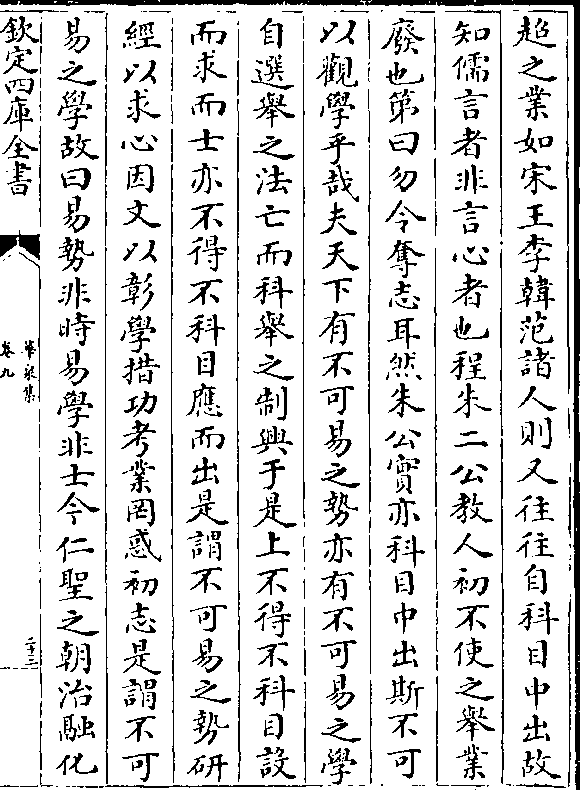 超之業如宋王李韓范諸人則又往往自科目中出故
知儒言者非言心者也程朱二公教人初不使之舉業
廢也第曰勿令奪志耳然朱公實亦科目中出斯不可
以觀學乎哉夫天下有不可易之勢亦有不可易之學
自選舉之法亡而科舉之制興于是上不得不科目設
而求而士亦不得不科目應而出是謂不可易之勢研
經以求心因文以彰學措功考業罔惑初志是謂不可
易之學故曰易勢非時易學非士今仁聖之朝治融化
欽定四庫全書
卷九
二十三